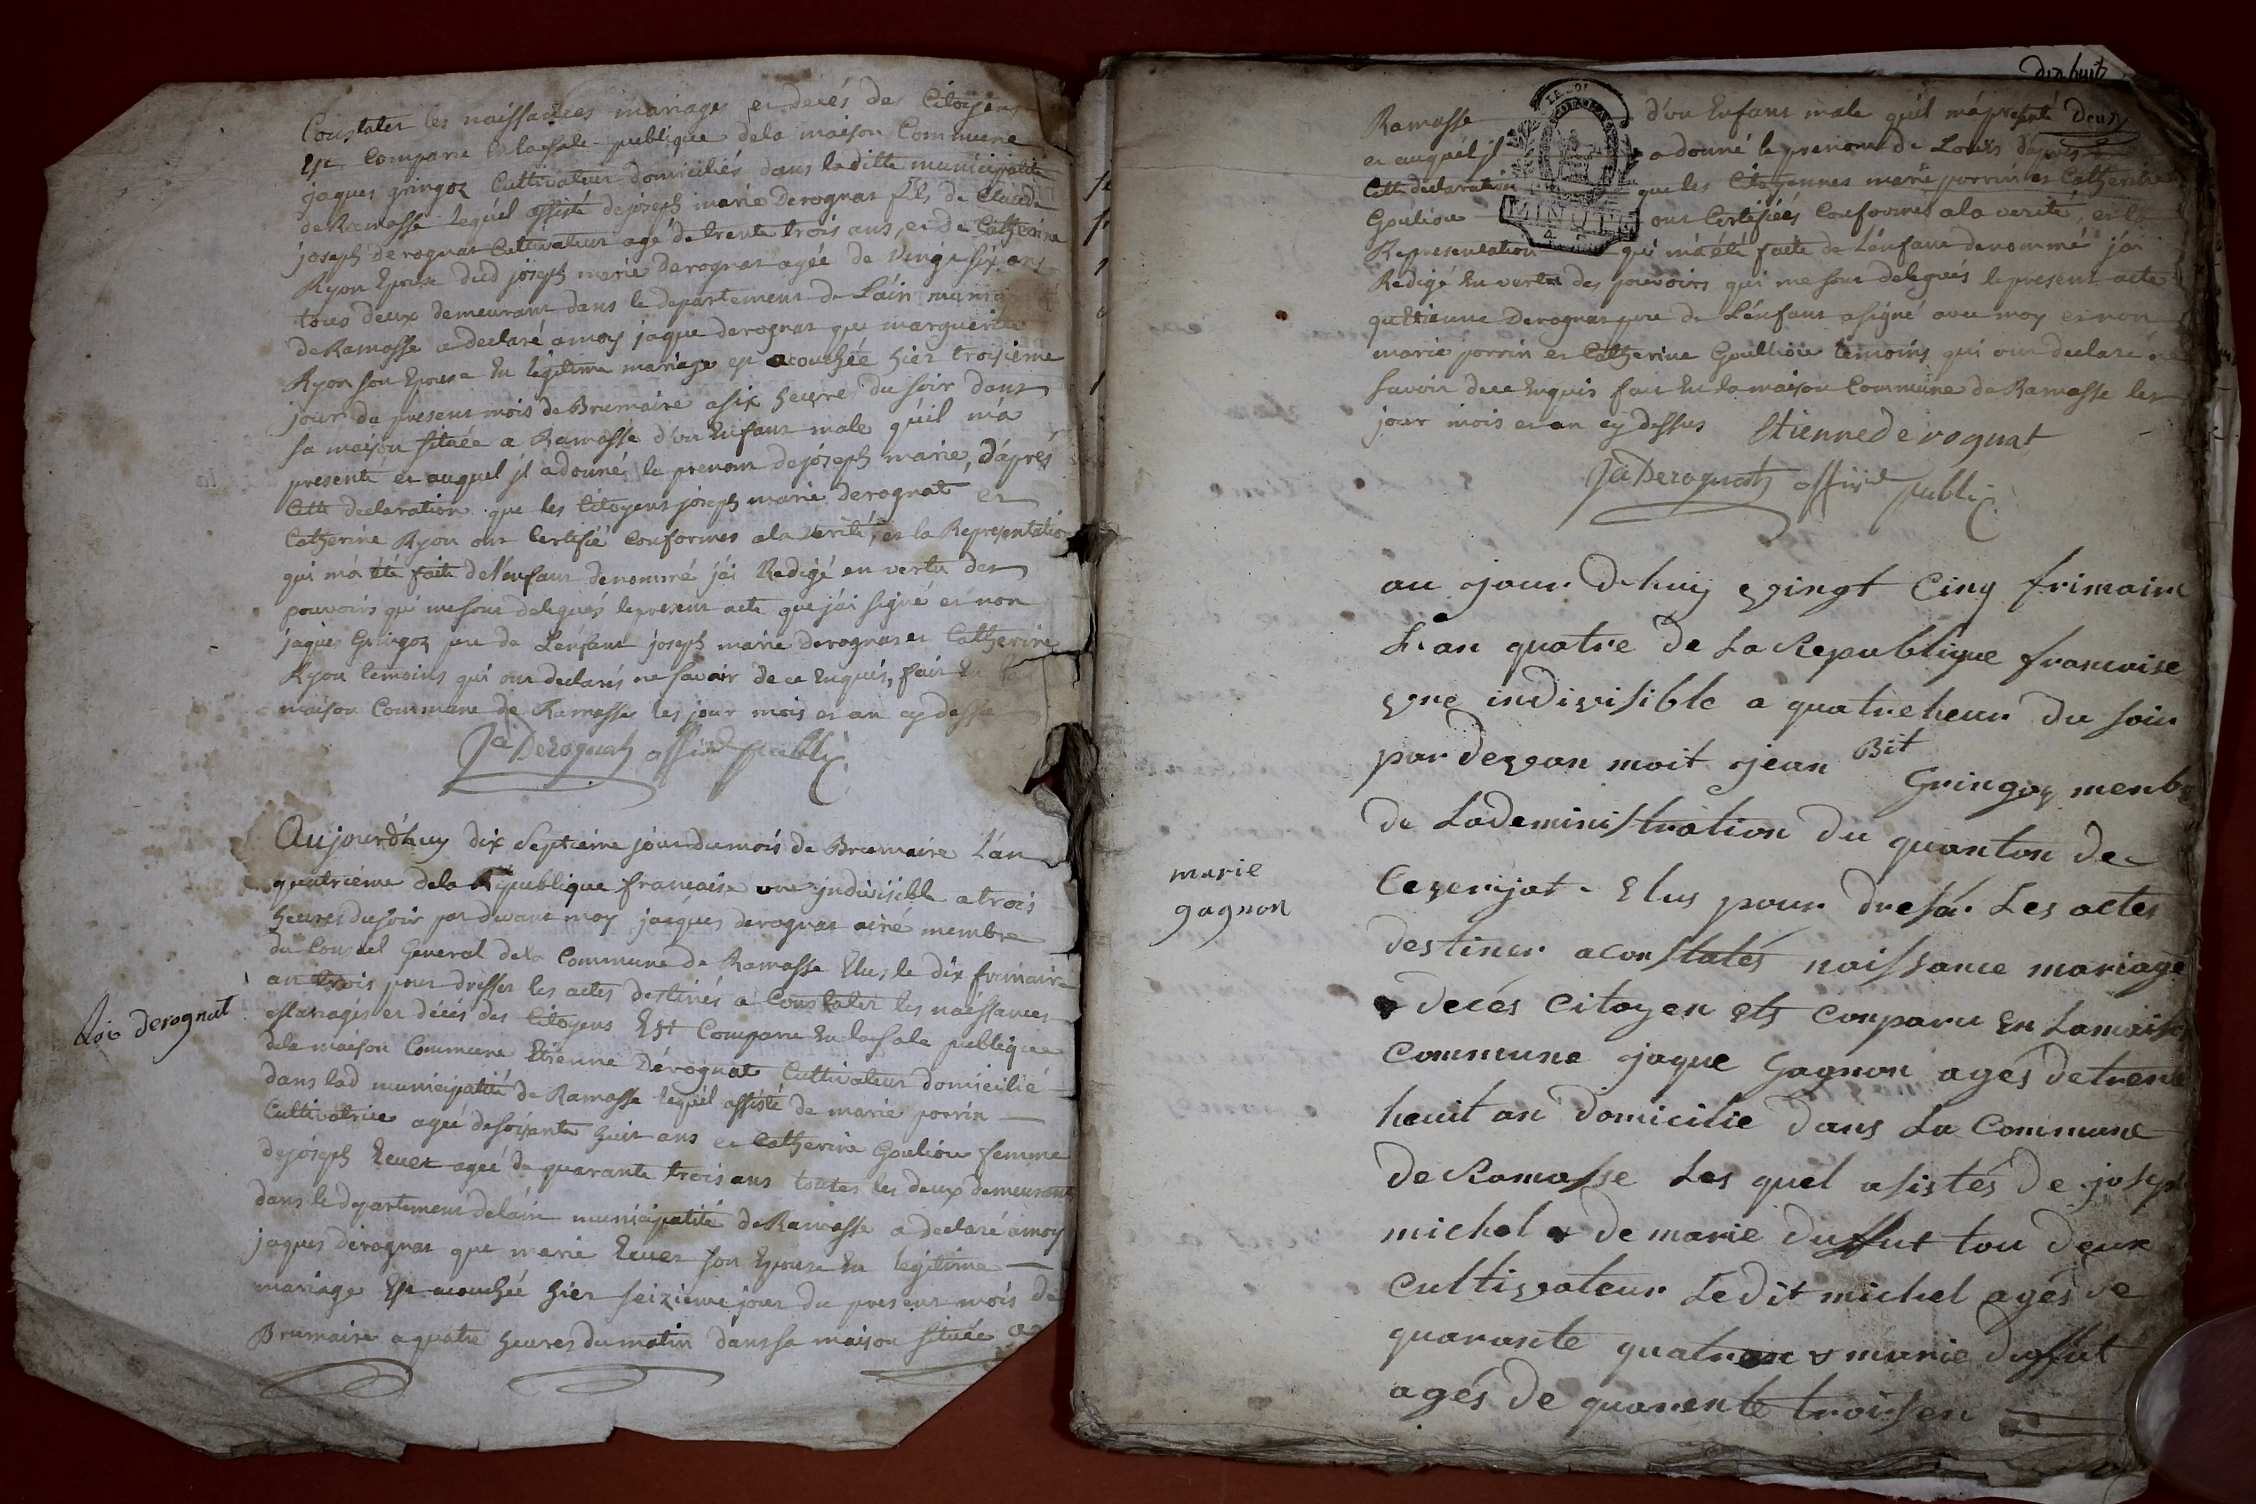 Constater les naissances mariages et decés des Citoyens
Est Comparu En lasale publique dela maison Commune
jaques gringoz Cultivateur domiciliés dans laditte municipalité
de Ramasse lequel assisté de joseph marie Derognat fils de Claude
joseph derognat Cultivateur agé de trente trois ans, et de Catherine
Ryon Epouse dud joseph marie derognat agée de vingt six ans
tous deux demeurant dans le departement de L'ain
de Ramasse a declaré a moy jaque derognat que marguerite
Ryon son Epouse En légitime mariage est acouchée hier troisieme
jour du present mois de Brumaire a six heures du soir dans
sa maison située a Ramasse d'un Enfant male qu'il m'a
presenté et auquel jl a donné le prenom de joseph marie, d'aprés
Cette declaration que les Citoyens joseph marie derognat et
Catherine Ryon ont Certifié Conformes ala verité, et la Representatio
qui m'a été faite de l'enfant denommé j'ai Redigé en vertu des
pouvoirs qui me sont delegués le present acte que j'ai signé et non
jaques Gringoz pere de L'enfant joseph marie derognat et Catherine
Ryon temoins qui ont declarés ne savoir de ce Enquis, fait En la
maison Commune de Ramasse les jour mois et an cy dessus
Ja Derognat officié public
Aujourd'huy dix Septieme jour du mois de Brumaire L'an
quatrieme dela Republique francaise une jndivisible a trois
heures du soir par devant moy jacques derognat ainé membre
du Conseil General dela Commune de Ramasse Elus le dix frimaire
an trois pour dresser les actes destinés a Constater les naissances
Mariages et décés des Citoyens Est Comparu En lasale publique
dela maison Commune Etienne Dérognat Cultivateur domicilié
derognat
dans lad municipalité de Ramasse lequel assisté de marie porrin
Cultivatrice agée de soixante huit ans et Catherine Goulion femme
de joseph agée de quarante trois ans toutes les deux demeurant
dans le departement de lain municipalité de Ramasse a declaré a moy
jaques derognat que marie son Epouse En legitime
mariage Est acouchée hier seizieme jour du present mois de
Brumaire a quatre heures du matin dans sa maison située a
dix huit
deux
Ramasse d'un Enfant male qu'il m'a presenté
et auquel jl a donné le prenom de Louis d'apres
Cette declaration que les Citoyennes marie porrin et Catherine
Goulion ont Certifiées Conformes a la verité et la
Representation qui m'a été faite de L'enfant denommé j'ai
LA LOI
MINUTE
Redigé En vertu des pouvoirs qui me sont delegués le present acte
qu'Etienne Derognat pere de L'enfant a signé avec moy et non
marie porrin et Catherine Goullion temoins qui ont declaré ne
savoir de ce Enquis fait En la maison Commune de Ramasse les
jour mois et an cy dessus Etienne derognat
Ja Derognat officié public
au ojour dhuij vingt Cinq frimaire
L'an quatre de La Republique francaise
vne indivisible a quatre heur du soir
par devan moit ojean Bit Gringoz menbre
de Ladeministration du quanton de
Cezerijat Elus pour dresér Les actes
destiner a constatés naissance mariage
& decés Citoyen ets Conparu En Lamaison
marie
gagnon
Commune ojaque Gagnon ages de trente
heuit an domicilie dans La Commune
de Ramasse Les quel asistés de joseph
michel & de marie duffut tou deux
Cultivateur Ledit michel agés de
quarante quatr an & marie duffut
agés de quarente trois en